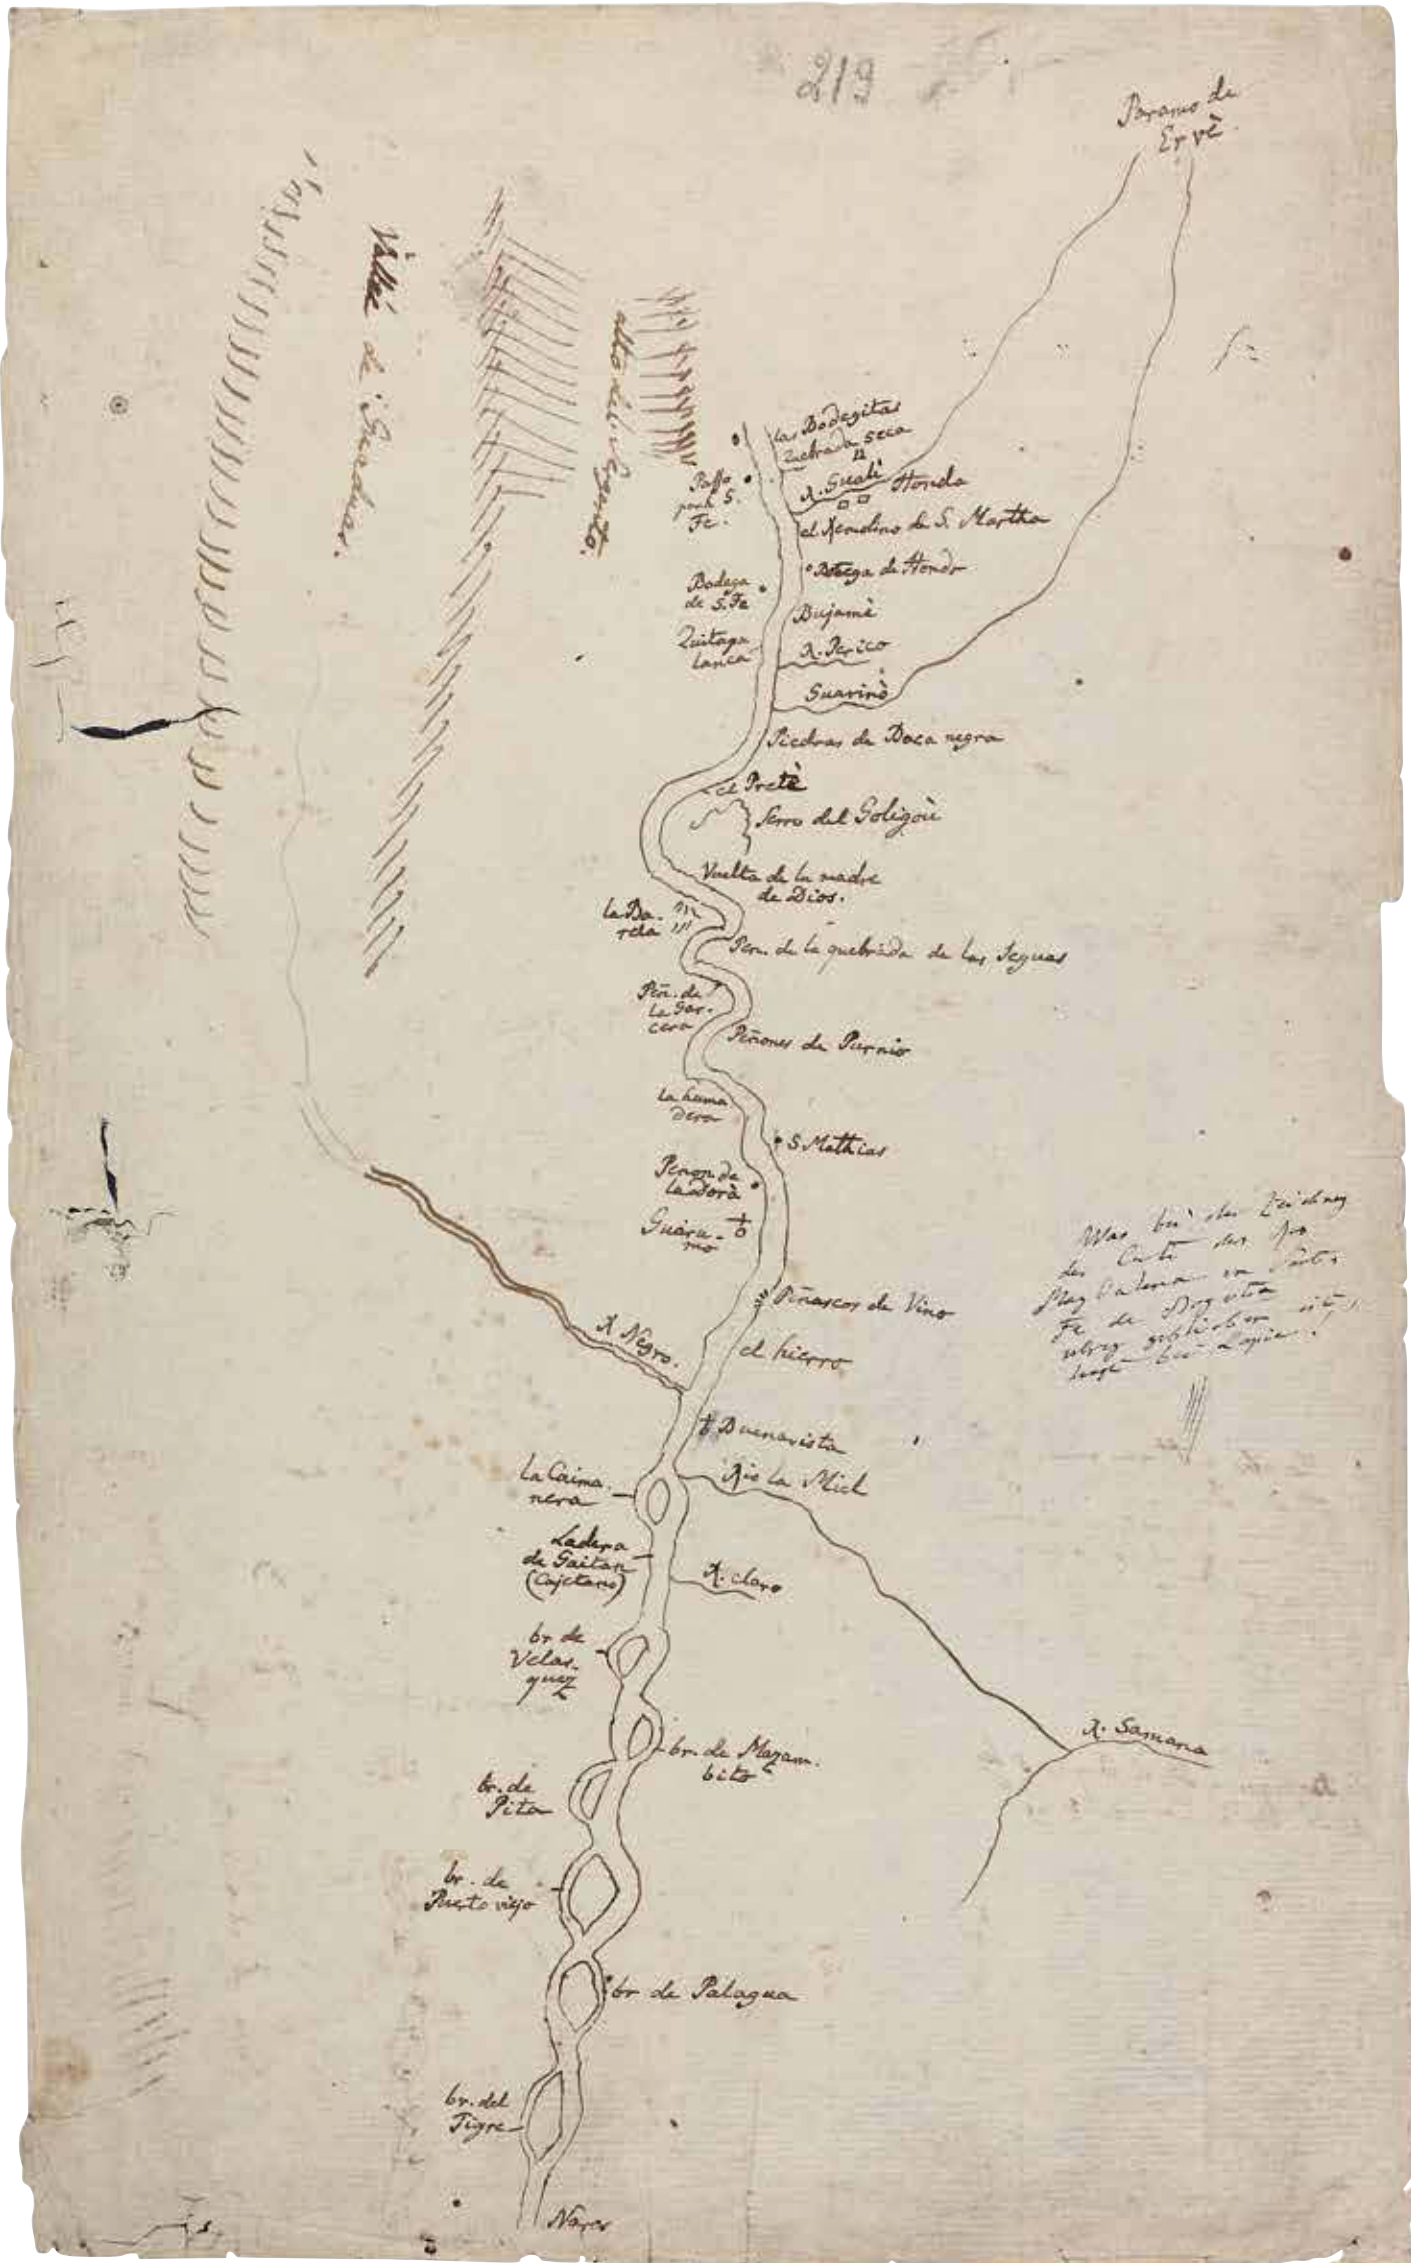 219
Paramo de
Ervè.
Vallée de Guaduas.
alto del Sargento.
las Bodegitas
Quebrada seca
R. Guali
Honda
Passo
para S.
Fe.
el Remolino de S. Martha
Bodega de Honda
Bodega
de S. Fe
Bujamè
Quitapa
lanca
R. Perico
Guarinò
Piedras de Boca negra
el Pretè
Serro del Goligoù
Vuelta de la madre
de Dios.
la Ba-
rela
Pen. de la quebrada de las Yeguas
Peñ. de
la Gar-
cera
Peñones de Purnio
la huma
dera
S. Mathias
Penon de
la Dorà
Guaru-
mo
Peñascos de Vino
R Negro.
el hierro
Buenavista
Rio la Miel
la Caima
nera
Ladera
de Gaitan
(Cajetano)
R. claro
br de
Velas-
quez
br. de Mazam-
bito
R. Samana
br. de
Pita
br. de
Puerto viejo
br de Palagua
br. del
Tigre
Nares
Was bei der Zeichnung
der Carte des Rio
Magdalena in Santa
Fe de Bogota